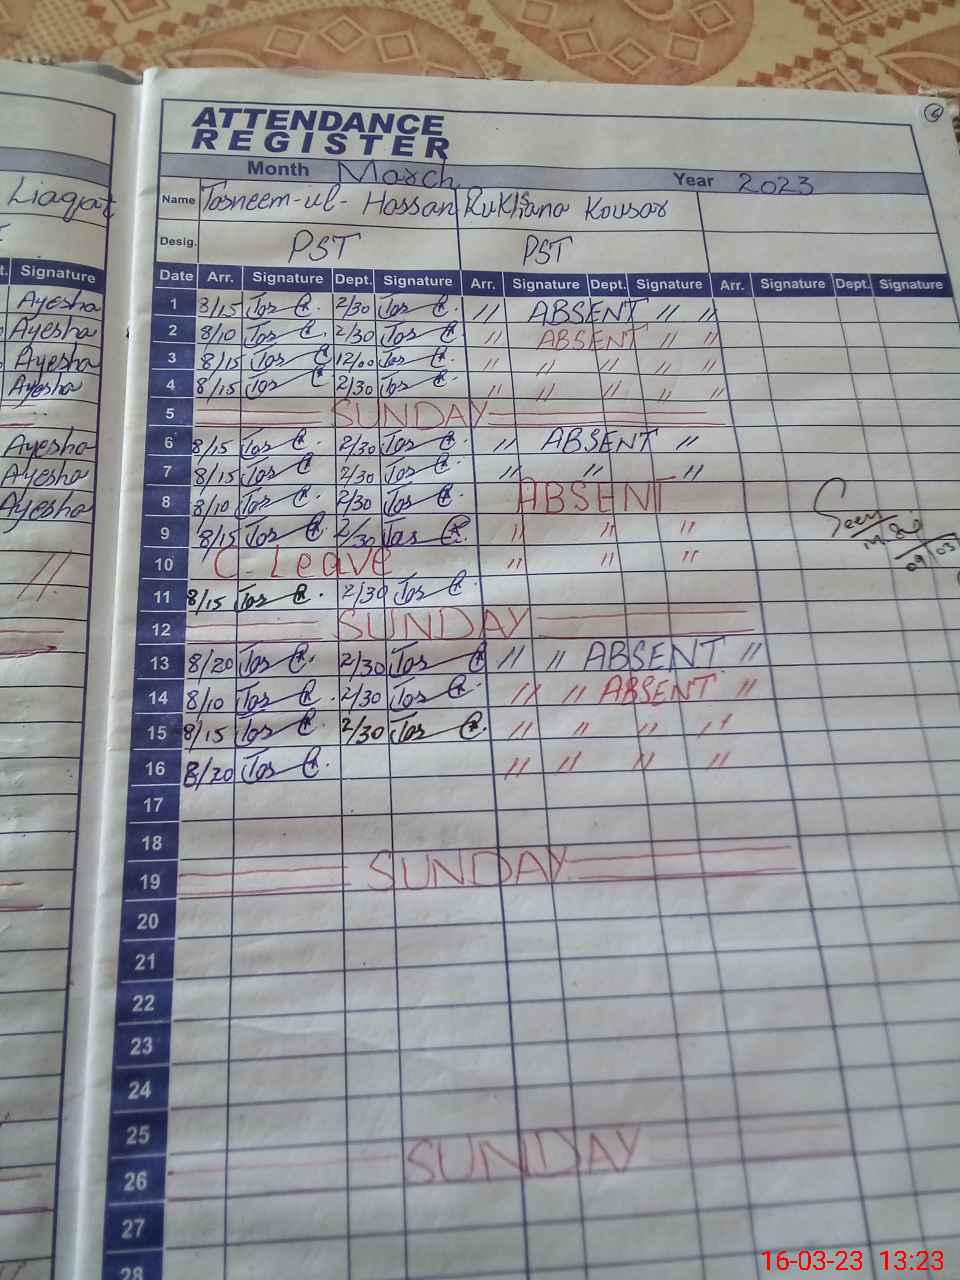 6
ATTENDANCE
REGISTER
Month March Year 2023
Liaqat
Name Tasneem-ul-Hassan Rukhsana Kousar
Desig. PST PST
t. Signature
Date Arr. Signature Dept. Signature Arr. Signature Dept. Signature Arr. Signature Dept. Signature
Ayesha
1 8/15 Tas 2/30 Tas // ABSENT // //
Ayesha
2 8/10 Tas 2/30 Tas // ABSENT // //
Ayesha
3 8/15 Tas 12/00 Tas // // // // //
Ayesha
4 8/15 Tas 2/30 Tas // // // // //
5 SUNDAY
Ayesha
6 8/15 Tas 2/30 Tas // ABSENT //
Ayesha
7 8/15 Tas 2/30 Tas // // //
Ayesha
8 8/10 Tas 2/30 Tas ABSENT
Seen
9 8/15 Tas 2/30 Tas // // //
09/03
10 C. Leave // // //
//
11 8/15 Tas 2/30 Tas
12 SUNDAY
13 8/20 Tas 2/30 Tas // // ABSENT //
14 8/10 Tas 2/30 Tas // // ABSENT //
15 8/15 Tas 2/30 Tas // // // //
16 8/20 Tas // // // //
17
18
19 SUNDAY
20
21
22
23
24
25
26 SUNDAY
27
28
16-03-23 13:23